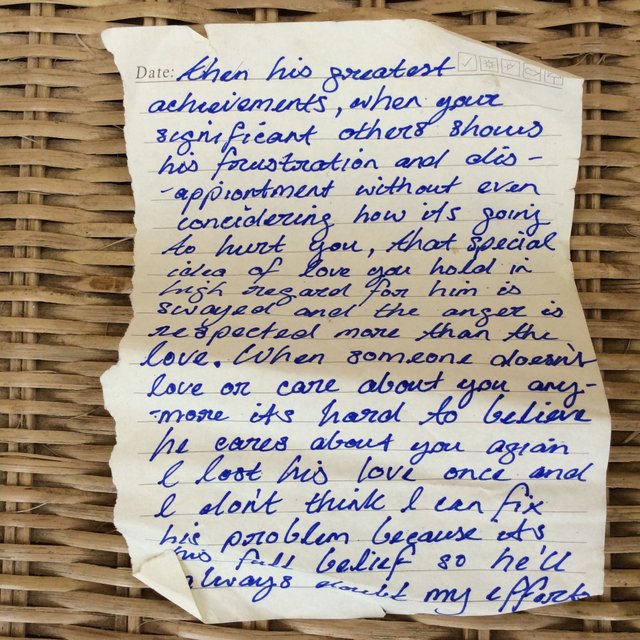 Date: then his greatest
achievements, when your
significant others shows
his frustration and dis-
-appiontment without even
concidering how its going
to hurt you, that special
idea of love you hold in
high regard for him is
swayed and the anger is
respected more than the
love. When someone doesn't
love or care about you any-
-more its hard to believe
he cares about you again
I lost his love once and
I don't think I can fix
his problem because its
his full belief so he'll
always doubt my efforts